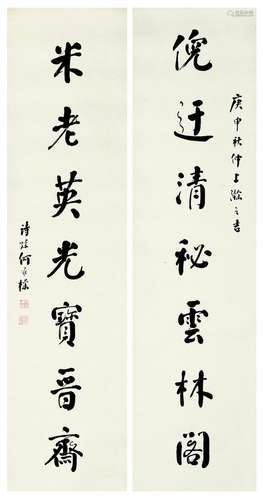 倪迂清秘雲林閣
庚申秋仲上澣之吉
米老英光寶晉齋
詩孫何維樸